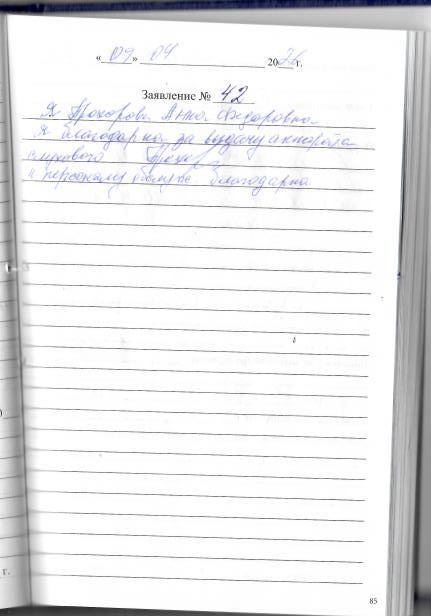 «09» 04 2026 г.
Заявление № 42
Я Прохорова Анна Федоровна
Я благодарна за выдачу аппарата
слухового
и персоналу благодарна
85
г.